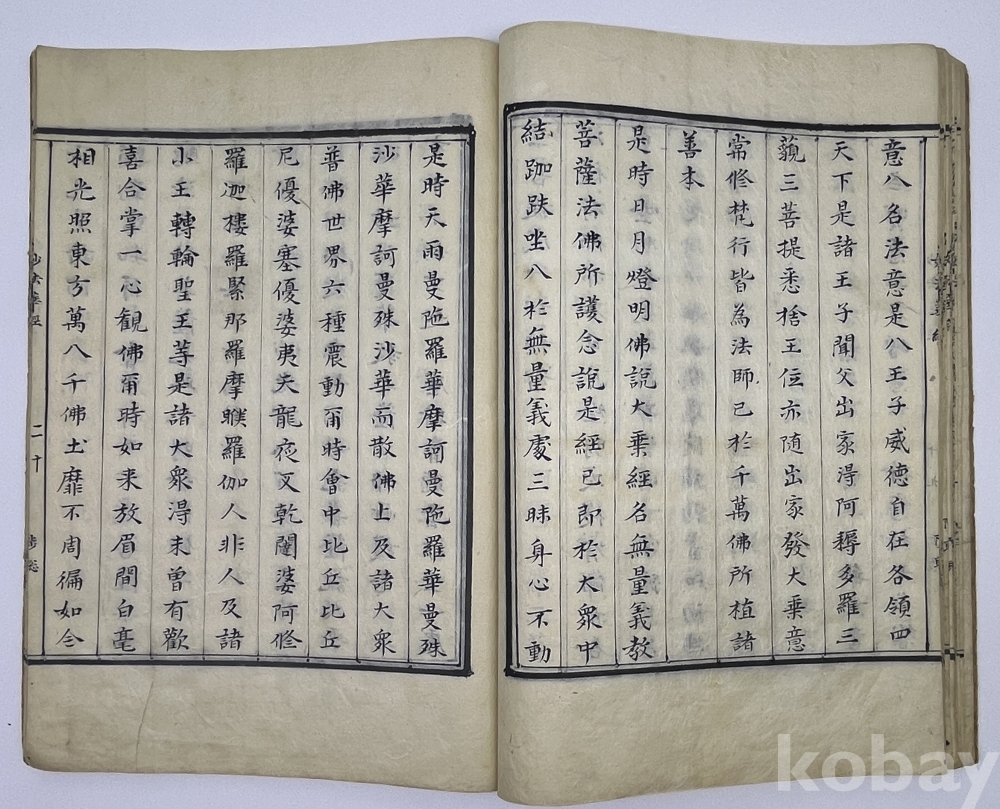 意八名法意是八王子威德自在各領四
天下是諸王子聞父出家淂阿耨多羅三
藐三菩提悉捨王位亦随出家發大乗意
常修梵行皆為法師已於千萬佛所植諸
善本
是時日月燈明佛說大乗經名無量義教
菩薩法佛所護念說是經已即於大衆中
結跏趺坐八於無量義處三昧身心不動
是時天雨曼陁羅華摩訶曼陁羅華曼殊
沙華摩訶曼殊沙華而散佛上及諸大衆
普佛世界六種震動甭時會中比丘比丘
尼優婆塞優婆夷天龍夜叉乾闥婆阿修
羅迦樓羅緊那羅摩睺羅伽人非人及諸
小王轉輪聖王等是諸大衆淂未曽有歡
喜合掌一心観佛甭時如来放眉間白毫
相光照東方萬八千佛土靡不周徧如今
妙法華經
二十
kobay